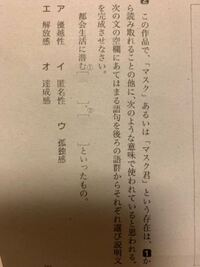 この作品で、「マスク」あるいは「マスク君」という存在は、1か
ら読み取れることの他に、次のような意味で使われていると思われる。
次の文の空欄にあてはまる語句を後ろの語群からそれぞれ選び説明文
を完成させなさい。
都会生活に潜む[ ][ ]といったもの。
ア 優越性 イ 匿名性 ウ 孤独感
エ 解放感 オ 達成感